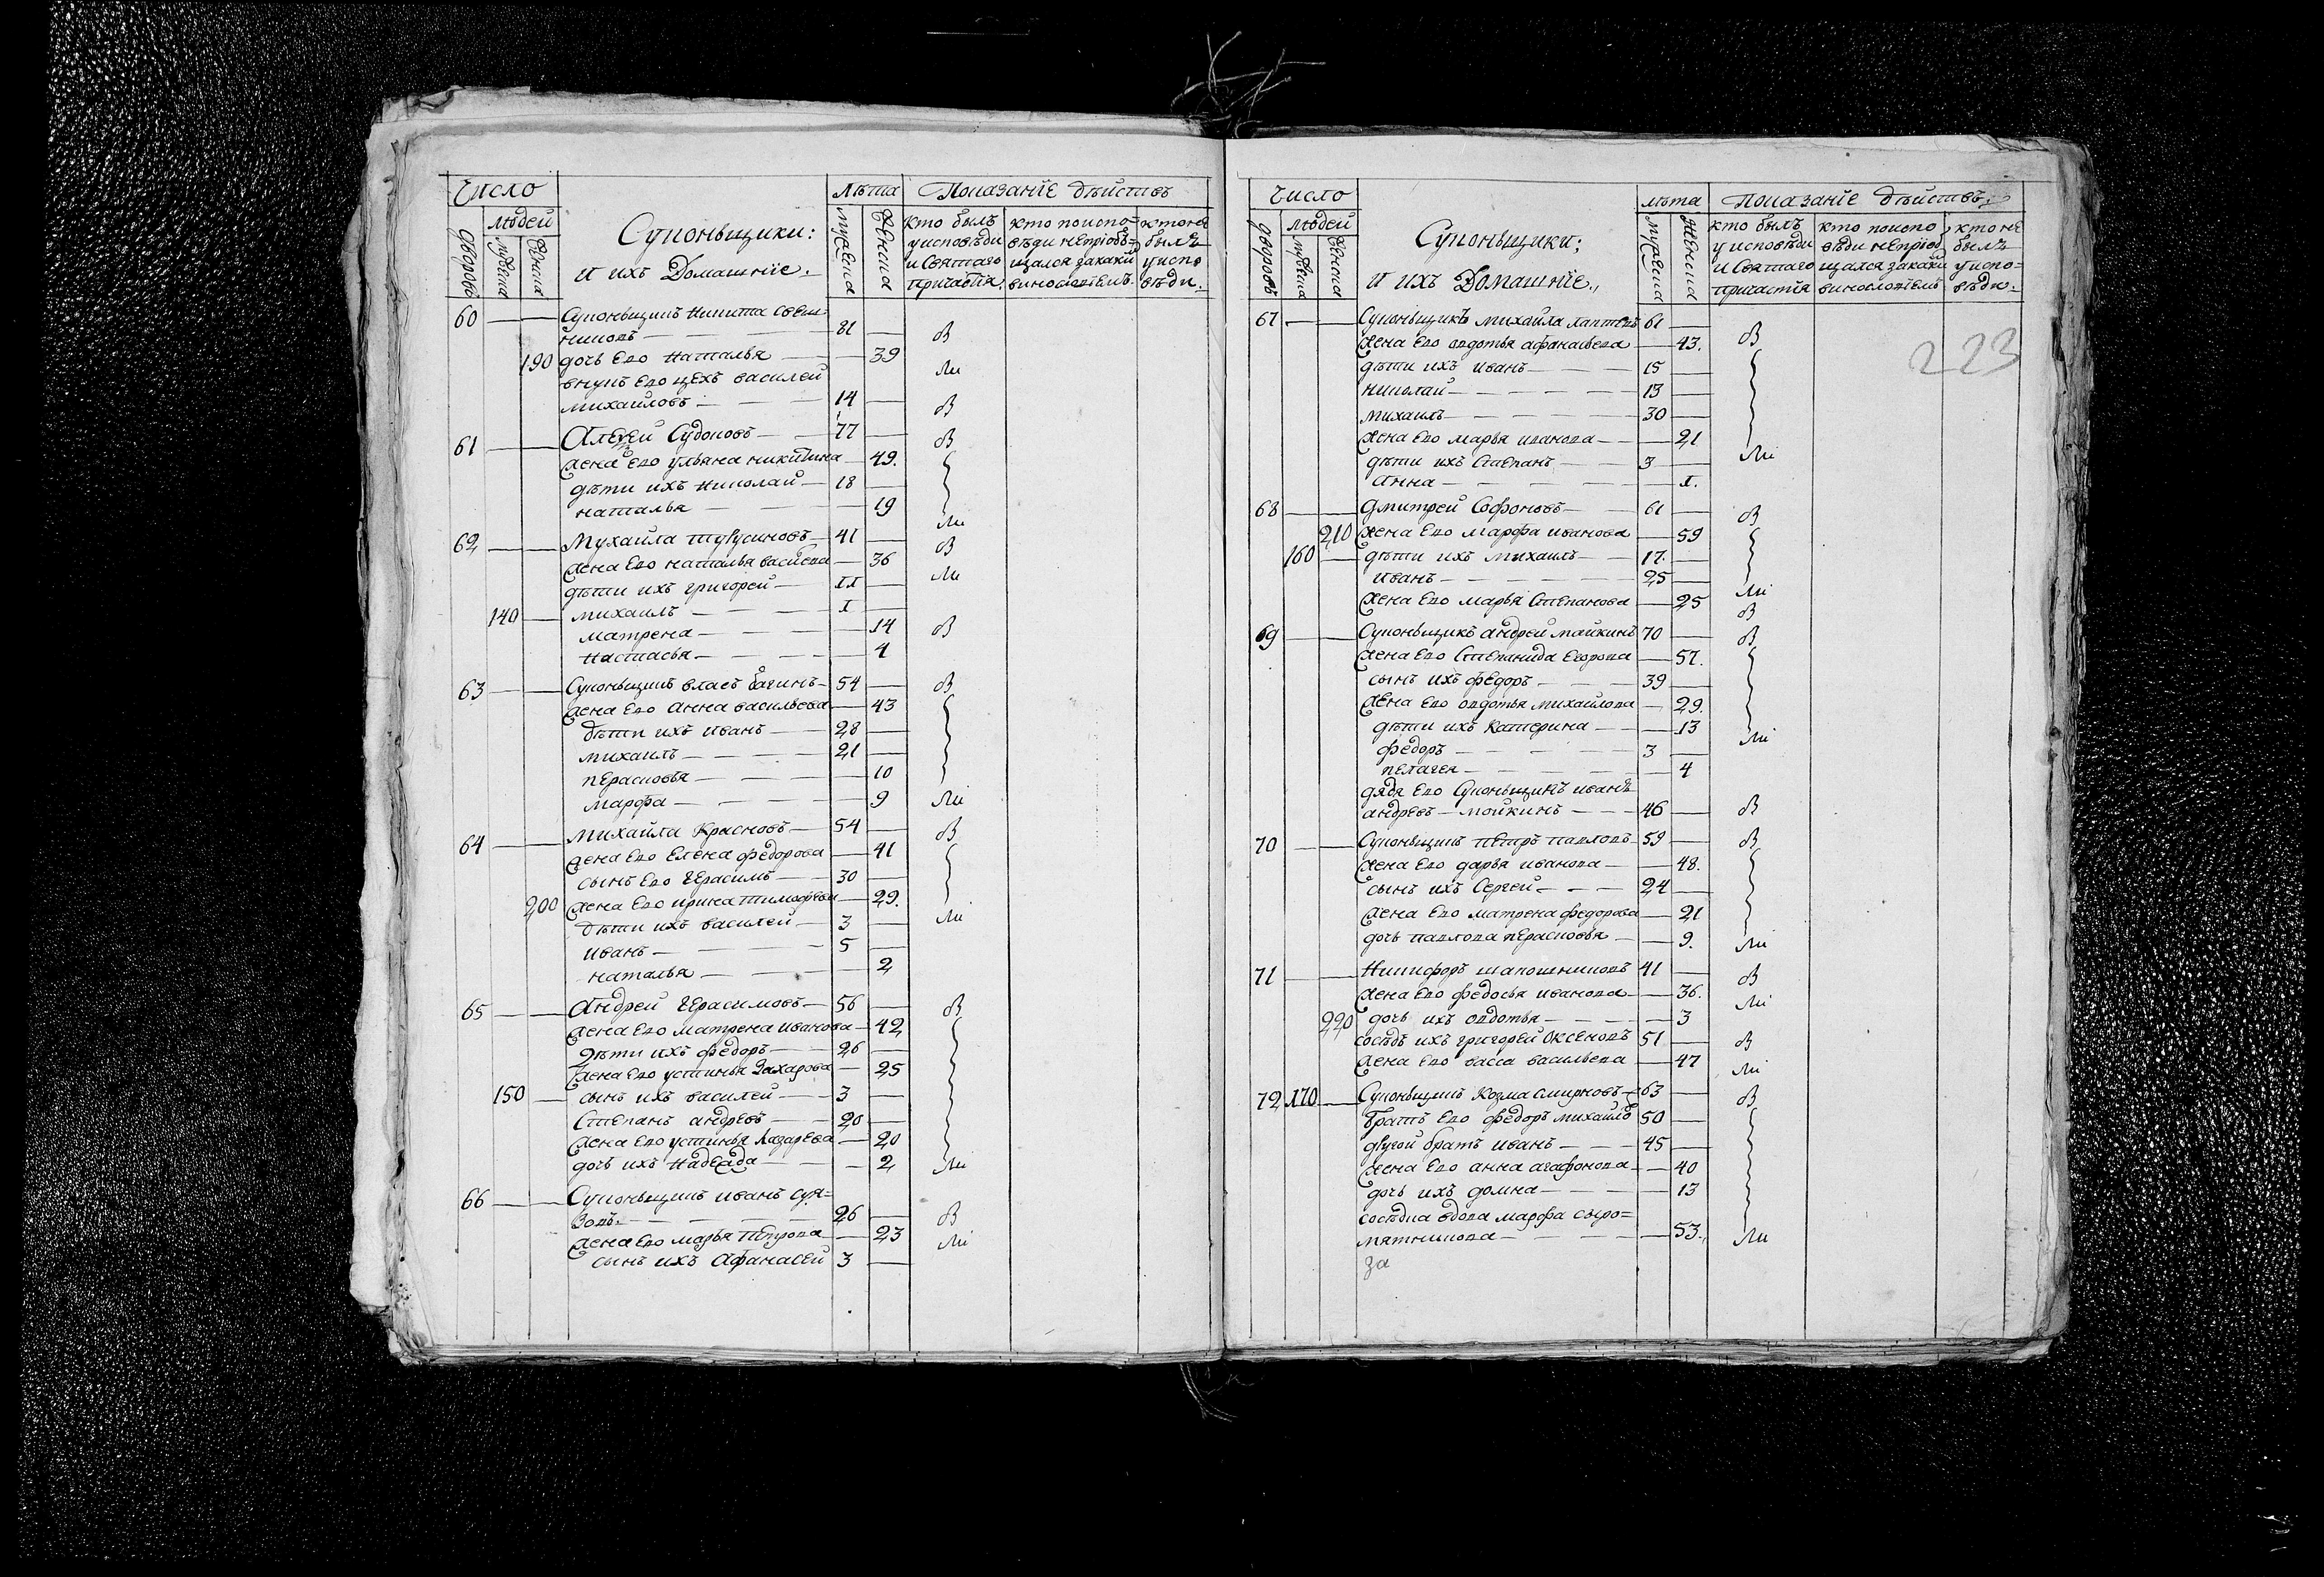 Число
людей
дворовъ
мужеска
женска
Суконьщики:
и ихъ Домашнїе.
лѣта
мужеска
женска
Показанїе дѣйствъ
кто былъ
у исповѣди
и Святаго
причастїя.
кто по испо=
вѣди непрїобъ=
щался за каки
винословїемъ.
кто не
былъ
у испо
вѣди.
60 — — Суконьщикъ Никита
никовъ — 81 — В
190 дочь Его Наталья — 39
внукъ Его цехъ василей Ли
михайловъ — 14 — В
61 — — Алеѯей Судоковъ — 77 — В
жена Его ульяна никитина — 49.
дѣти ихъ Николай — 18 —
наталья — 19 Ли
62 — — Михайла — 41 — В
жена Его наталья василева — 36 Ли
дѣти ихъ григорей — 11 —
140 — михаилъ — 1 —
матрена — 14 В
Настасья — 4
63 — — Суконьщикъ власъ багинъ — 54 — В
жена Его Анна васильева — 43
дѣти ихъ иванъ — 28 —
михаилъ — 21 —
перасковья — 10
марфа — 9 Ли
64 — — михайла Красновъ — 54 — В
жена Его Елена федорова — 41
сынъ Его Герасимъ — 30 —
200 жена Его ирина тимофева — 29.
дѣти ихъ василей — 3 — Ли
иванъ — 5 —
наталья — 2
65 — — Андрей Герасимовъ — 56 — В
жена Его матрена иванова — 42
дѣти ихъ федоръ — 26 —
жена Его устинья Захарова — 25
150 — сынъ ихъ василей — 3 —
Степанъ андревъ — 20 —
жена Его устинья Лазарева — 20
дочь ихъ Надежда — 2 Ли
66 — — Суконьщикъ иванъ суя=
зовъ — 26 — В
жена Его марья Петрова — 23 Ли
сынъ ихъ Афанасей 3 —
Число
людей
дворовъ
мужеска
женска
Суконьщики;
и ихъ Домашнїе.,
лѣта
мужеска
женска
Показанїе дѣйствъ;
кто былъ
у исповѣди
и Святаго
причастїя
кто по испо
вѣди непрїоб
щался за каки
винословїемъ
кто не
былъ
у испо=
вѣди.
223
67 — — Суконьщикъ михайла лаптевъ 61 — В
жена Его авдотья афанасьева — 43.
дѣти ихъ иванъ — 15 —
николай — 13 —
михаилъ — 30 —
жена Его марья иванова — 21
дѣти ихъ Степанъ — 3 — Ли
Анна — 1.
68 — — Дмитрей Софоновъ — 61 — В
210 жена Его марфа иванова — 59
160 — дѣти ихъ михаилъ — 17. —
иванъ — 25 — Ли
жена Его марья Степанова — 25 В
69 — — Суконьщикъ андрей майкинъ 70 — В
жена Его Степанида Егорова — 57.
сынъ ихъ федоръ — 39 —
жена Его авдотья михайлова — 29.
дѣти ихъ Катерина — 13 Ли
федоръ — 3 —
пелагея — 4
дядя Его Суконьщикъ иванъ
андревъ — мойкинъ — 46 — В
70 — — Суконьщикъ Петръ павловъ 59 — В
жена Его дарья иванова — 48.
сынъ ихъ Сергей — 24 —
жена Его матрена федорова — 21
дочь павлова перасковья — 9. Ли
71 — — Никифоръ шапошниковъ 41 — В
жена Его федосья иванова — 36. Ли
220 дочь ихъ авдотья — 3
сосѣдъ ихъ григорей Оксеновъ 51 — В
жена Его васса васильева — 47 Ли
72 170 — Суконьщикъ Козма смирновъ — 63 — В
братъ Его федоръ михайло 50 —
другой братъ иванъ — 45 —
жена Его анна агафонова — 40
дочь ихъ домна — 13
сосѣдка вдова марфа сыро=
мятникова — 53. Ли
за